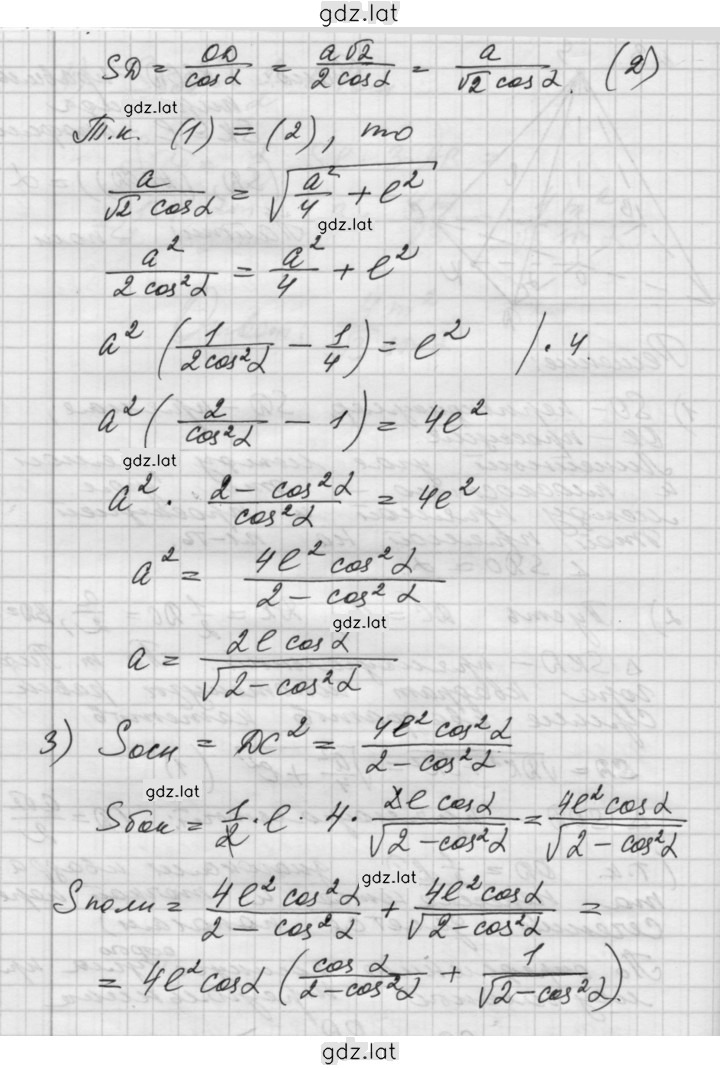 gdz.lat
SD = OD/cosα = a√2/2cosα = a/√2 cosα. (2)
gdz.lat
Т.к. (1) = (2), то
a/√2 cosα = √(a²/4 + l²)
gdz.lat
a²/2cos²α = a²/4 + l²
a² (1/2cos²α − 1/4) = l² /·4.
a² (2/cos²α − 1) = 4l²
gdz.lat
a² · 2 − cos²α/cos²α = 4l²
a² = 4l² cos²α/2 − cos²α
gdz.lat
a = 2l cosα/√(2 − cos²α)
3) Sосн = DC² = 4l² cos²α/2 − cos²α
gdz.lat
Sбок = 1/2 · l · 4 · 2l cosα/√(2 − cos²α) = 4l² cosα/√(2 − cos²α)
gdz.lat
Sполн = 4l² cos²α/2 − cos²α + 4l² cosα/√(2 − cos²α) =
= 4l² cosα (cosα/2 − cos²α + 1/√(2 − cos²α)).
gdz.lat